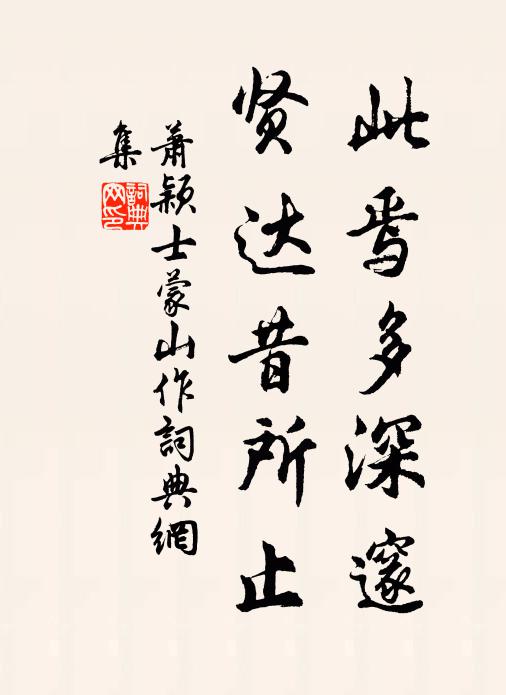 此焉多深邃
贤达昔所止
萧颖士蒙山作詞典網
集
詞典
网印